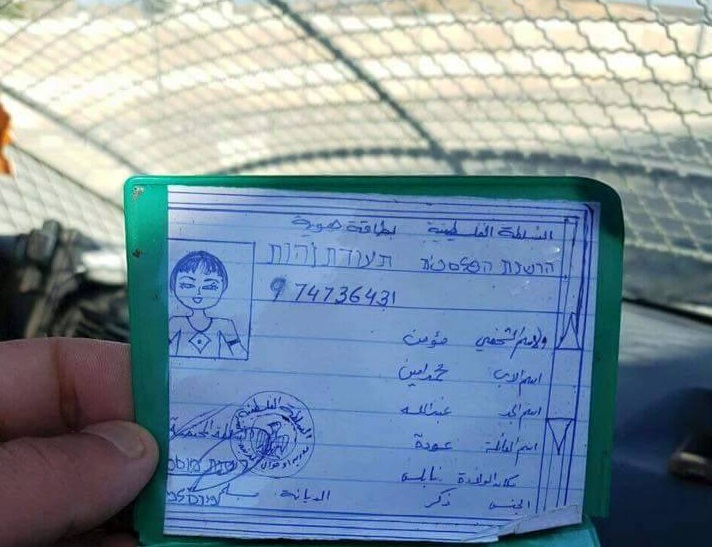 السلطة الفلسطينية بطاقة هوية
הרשות הפלסטינית תעודת זהות
9 74736431
والاسم الشخصي مؤمن
اسم الاب محمد امين
اسم الجد عبدالله
اسم العائلة عودة
مكان الولادة نابلس
الجنس ذكر الديانة
السلطة الفلسطينية